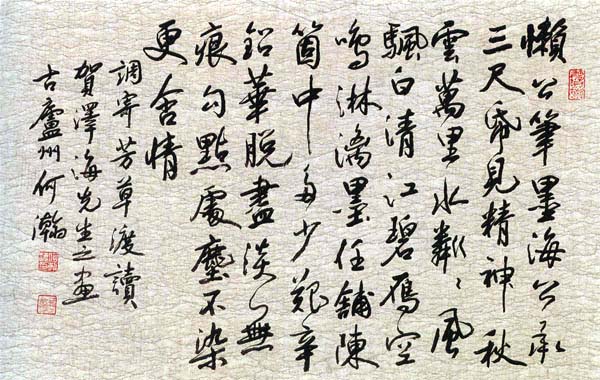 懶公筆墨海公承
三尺帋見精神秋
雲萬里水粼〻風
飄白清江碧雁空
鳴淋漓墨任舖陳
箇中多少艱辛
鉛華脫盡淡〻無
痕勾點處塵不染
更含情
調寄芳草渡讀
賀澤海先生之畫
古廬州何瀚